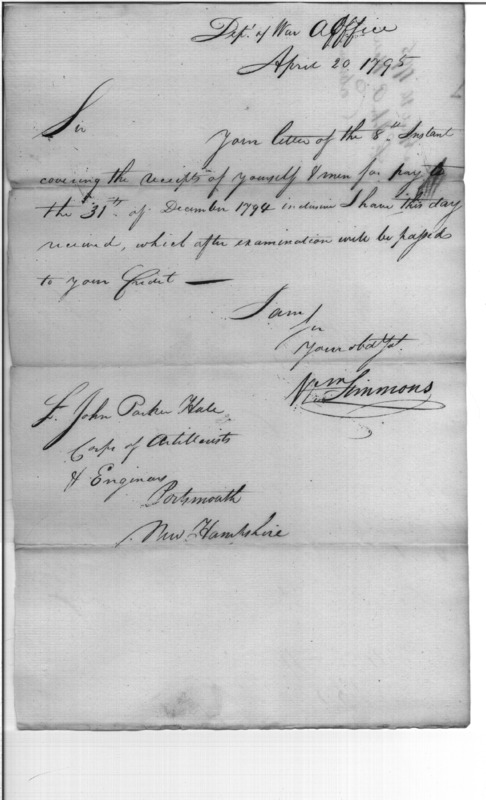 Dept. of War A Office
April 20 1795
Sir
Your letter of the 8th. Instant
covering the receipts of yourself & men for pay to
the 31st. of December 1794 inclusive I have this day
received, which after examination will be passed
to your Credit —
I am
Sir
Your obd St.
Wm Simmons
Lt. John Parker Hale
Corps of Artillerists
& Engineers
Portsmouth
New Hampshire